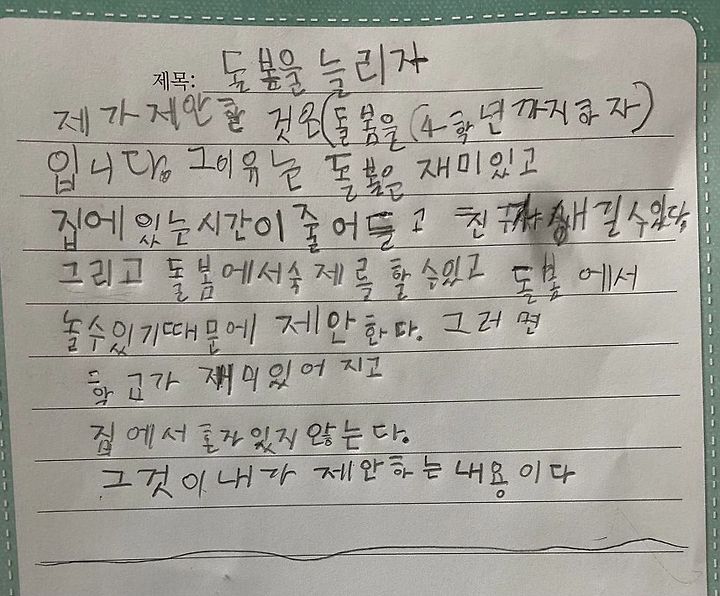 제목: 돌봄을 늘리자
제가 제안할 것은(돌봄을 (4학년까지하자)
입니다. 그이유는 돌봄은 재미있고
집에 있는시간이 줄어들고 친구가 생길수있다.
그리고 돌봄에서숙제를 할수있고 돌봄에서
놀수있기때문에 제안한다. 그러면
학교가 재미있어 지고
집에서 혼자있지않는다.
그것이내가 제안하는내용이다